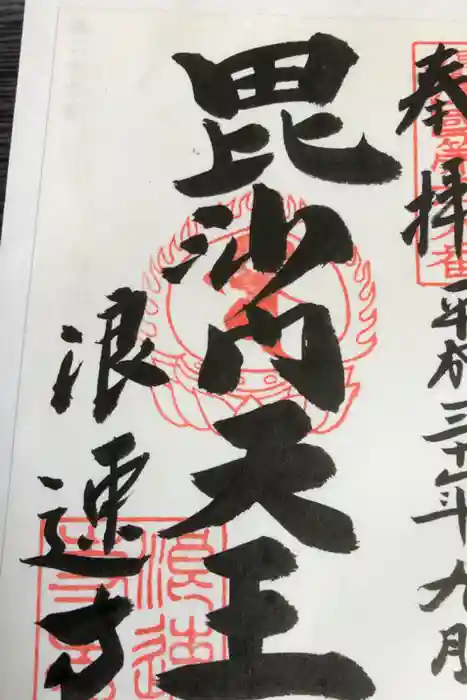 奉拝 平成三十年九月
毘沙門天王
浪速寺